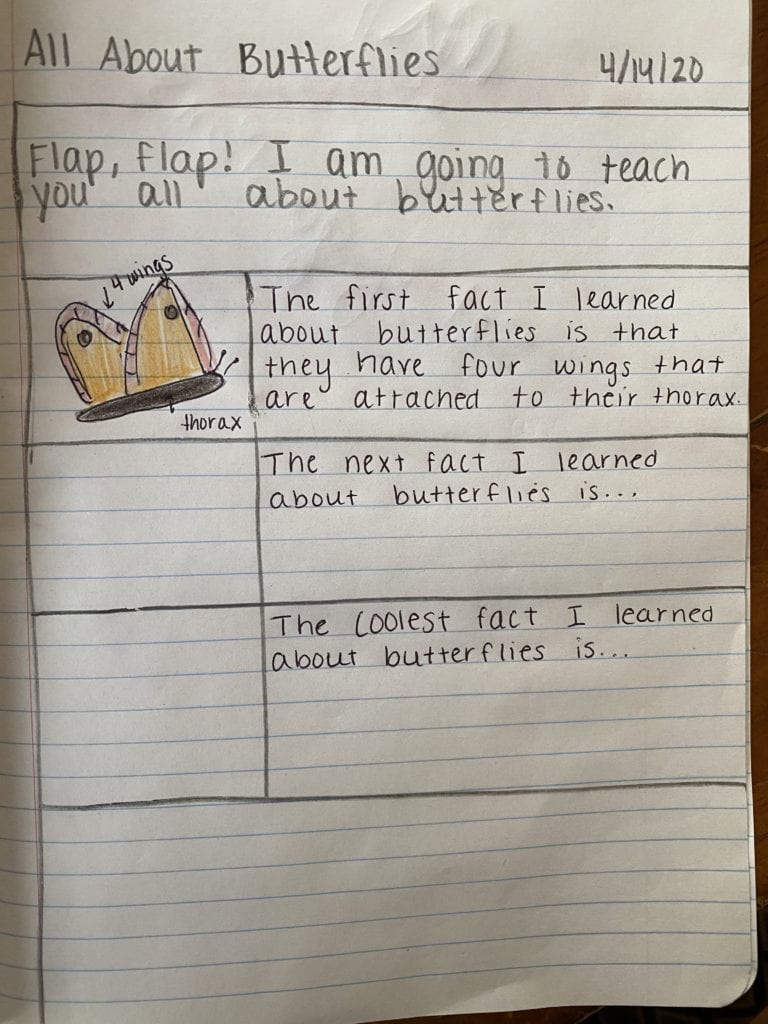 All About Butterflies 4/14/20
Flap, flap! I am going to teach
you all about butterflies.
4 wings
thorax
The first fact I learned
about butterflies is that
they have four wings that
are attached to their thorax.
The next fact I learned
about butterflies is...
The coolest fact I learned
about butterflies is...